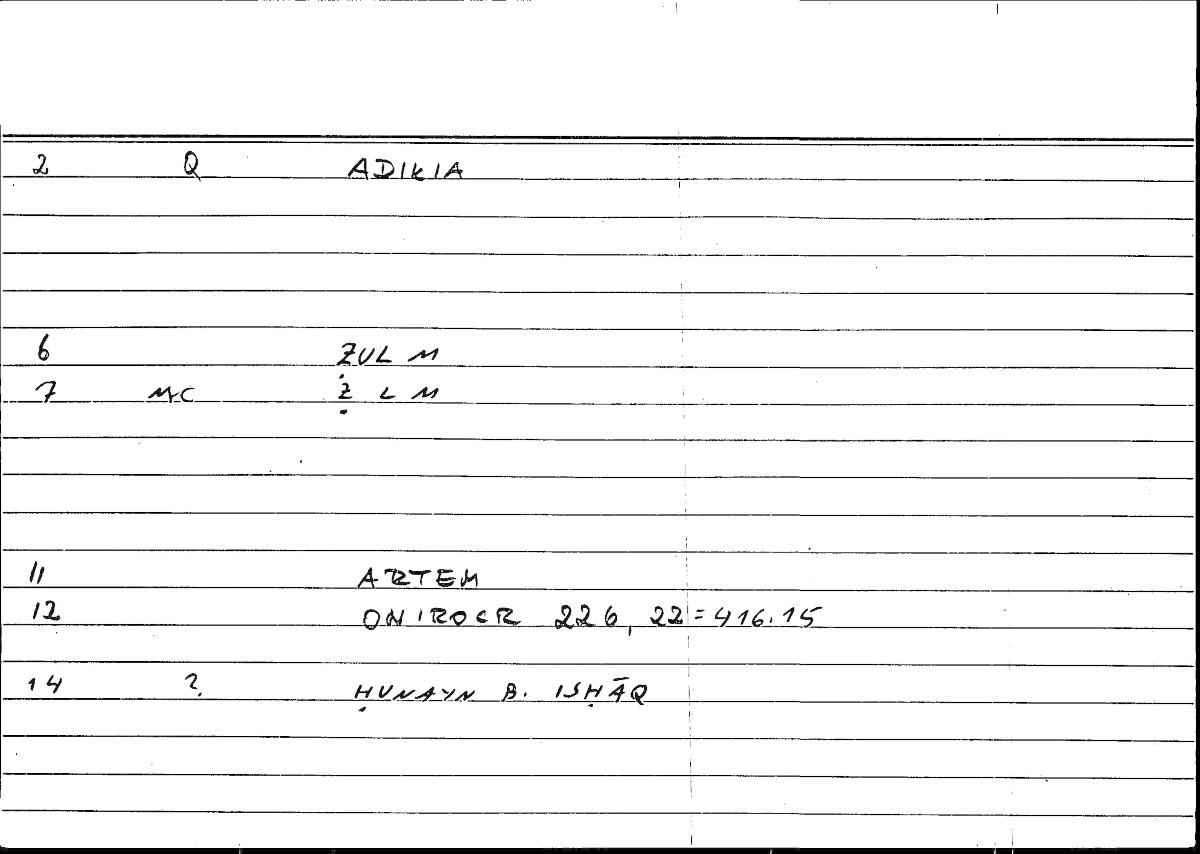 2 Q ADIKIA
6 ẒULM
7 MC Ẓ L M
11 ARTEM
12 ONIROCR 226, 22 = 416.15
14 ? ḤUNAYN B. ISḤĀQ